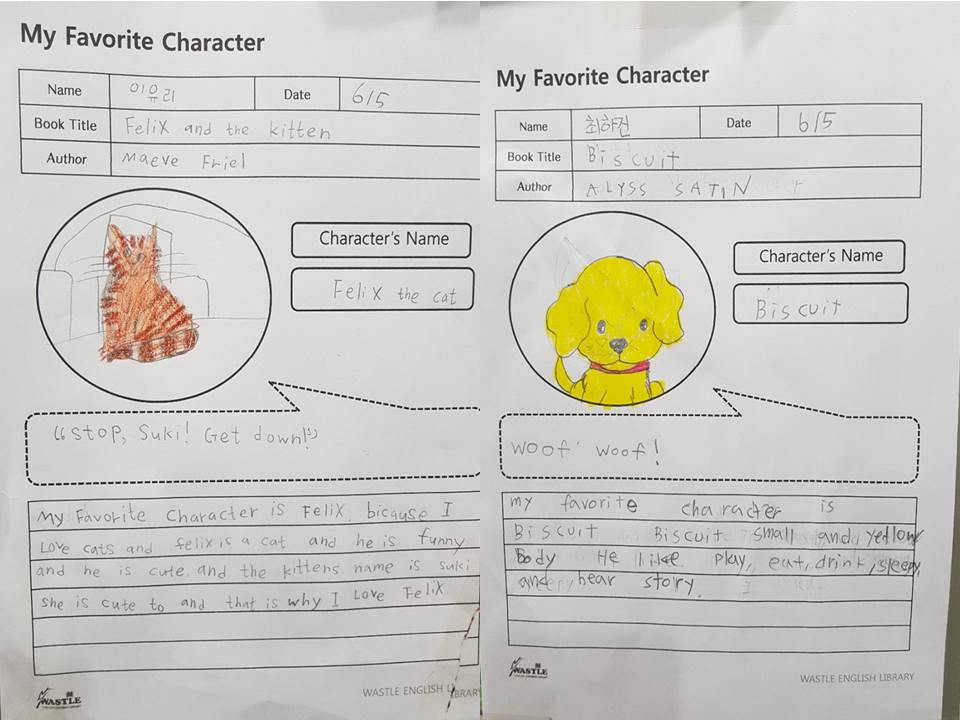 My Favorite Character
Name 이유리 Date 6/5
Book Title Felix and the kitten
Author Maeve Friel
Character's Name
Felix the cat
"Stop, Suki! Get down!"
My Favorite Character is Felix. bicause I
Love cats and felix is a cat and he is funny
and he is cute. and the kittens name is suki
she is cute to and that is why I Love Felix
WASTLE
WASTLE ENGLISH LIBRARY
My Favorite Character
Name 최하건 Date 6/5
Book Title Biscuit
Author ALYSS SATIN
Character's Name
Biscuit
woof woof!
my favorite character is
Biscuit Biscuit small and yellow
body He like play, eat, drink, sleep,
and hear story.
WASTLE
WASTLE ENGLISH LIBRARY